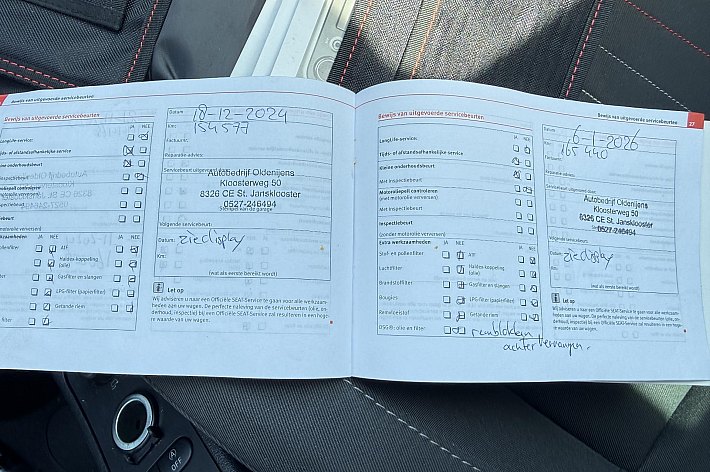 Bewijs van uitgevoerde servicebeurten
JA NEE
LongLife-service:
Tijds- of afstandsafhankelijke service
Kleine onderhoudsbeurt
Met inspectiebeurt
(met motorolie verversen)
Met inspectiebeurt
JA NEE
ATF
Haldex-koppeling
(olie)
Gasfilter en slangen
LPG-filter (papierfilter)
Getande riem
Datum: 18-12-2024
Km: 154577
Factuurnr.:
Reparatie-advies:
Servicebeurt uitgevoerd door:
Autobedrijf Oldenijens
Kloosterweg 50
8326 CE St. Jansklooster
0527-246494
Stempel van de garage
Volgende servicebeurt:
Datum: zie display
Km:
(wat als eerste bereikt wordt)
Let op
Wij adviseren u naar een Officiële SEAT-Service te gaan voor alle werkzaam-
heden aan uw wagen. De perfecte naleving van de servicebeurten (olie, on-
derhoud, inspectie) bij een Officiële SEAT-Service zal resulteren in een hoge-
re waarde van uw wagen.
Bewijs van uitgevoerde servicebeurten
Bewijs van uitgevoerde servicebeurten 27
JA NEE
LongLife-service:
Tijds- of afstandsafhankelijke service
Kleine onderhoudsbeurt
Met inspectiebeurt
Motoroliepeil controleren
(met motorolie verversen)
Met inspectiebeurt
Inspectiebeurt
(zonder motorolie verversen)
Extra werkzaamheden
JA NEE
Stof- en pollenfilter
ATF
Luchtfilter
Haldex-koppeling
(olie)
Brandstoffilter
Gasfilter en slangen
Bougies
LPG-filter (papierfilter)
Remvloeistof
Getande riem
DSG®: olie en filter
remblokken
achter vervangen.
Datum: 6-1-2026
Km: 165440
Factuurnr.:
Reparatie-advies:
Servicebeurt uitgevoerd door:
Autobedrijf Oldenijens
Kloosterweg 50
8326 CE St. Jansklooster
0527-246494
Volgende servicebeurt:
Datum: zie display
Km:
(wat als eerste bereikt wordt)
Let op
Wij adviseren u naar een Officiële SEAT-Service te gaan voor alle werkzaam-
heden aan uw wagen. De perfecte naleving van de servicebeurten (olie, on-
derhoud, inspectie) bij een Officiële SEAT-Service zal resulteren in een hoge-
re waarde van uw wagen.
OFF